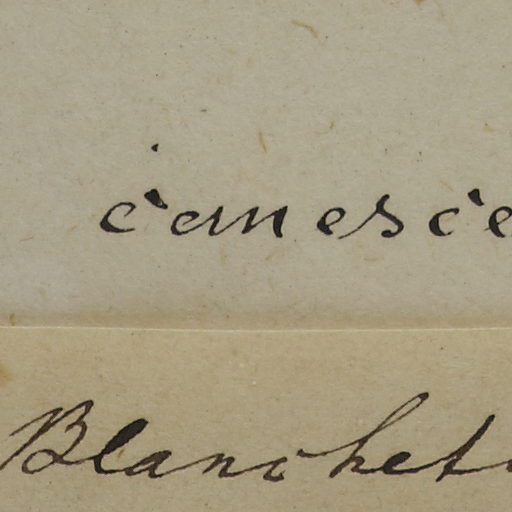 canesce
Blanchet